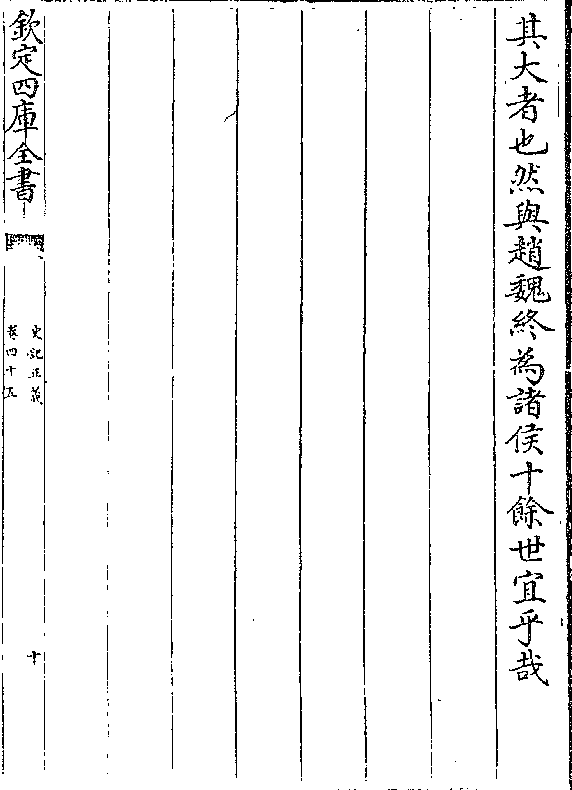 其大者也然與趙魏終為諸侯十餘世宜乎哉
欽定四庫全書
史記正義
卷四十五
十